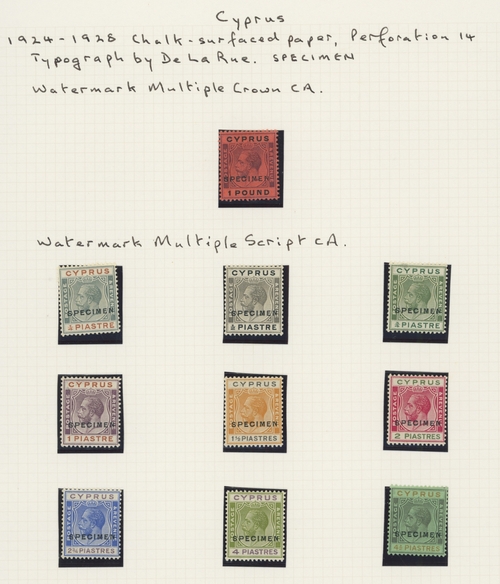 Cyprus
1924-1928 Chalk-surfaced paper, Perforation 14
Typograph by De La Rue. SPECIMEN
Watermark Multiple Crown CA.
CYPRUS
SPECIMEN
1 POUND
Watermark Multiple Script CA.
CYPRUS
SPECIMEN
¼ PIASTRE
CYPRUS
SPECIMEN
PIASTRE
CYPRUS
SPECIMEN
PIASTRE
CYPRUS
POSTAGE REVENUE
SPECIMEN
1 PIASTRE
CYPRUS
POSTAGE REVENUE
SPECIMEN
1½ PIASTRES
CYPRUS
POSTAGE REVENUE
SPECIMEN
2 PIASTRES
CYPRUS
SPECIMEN
2¾ PIASTRES
CYPRUS
SPECIMEN
4 PIASTRES
CYPRUS
SPECIMEN
4½ PIASTRES